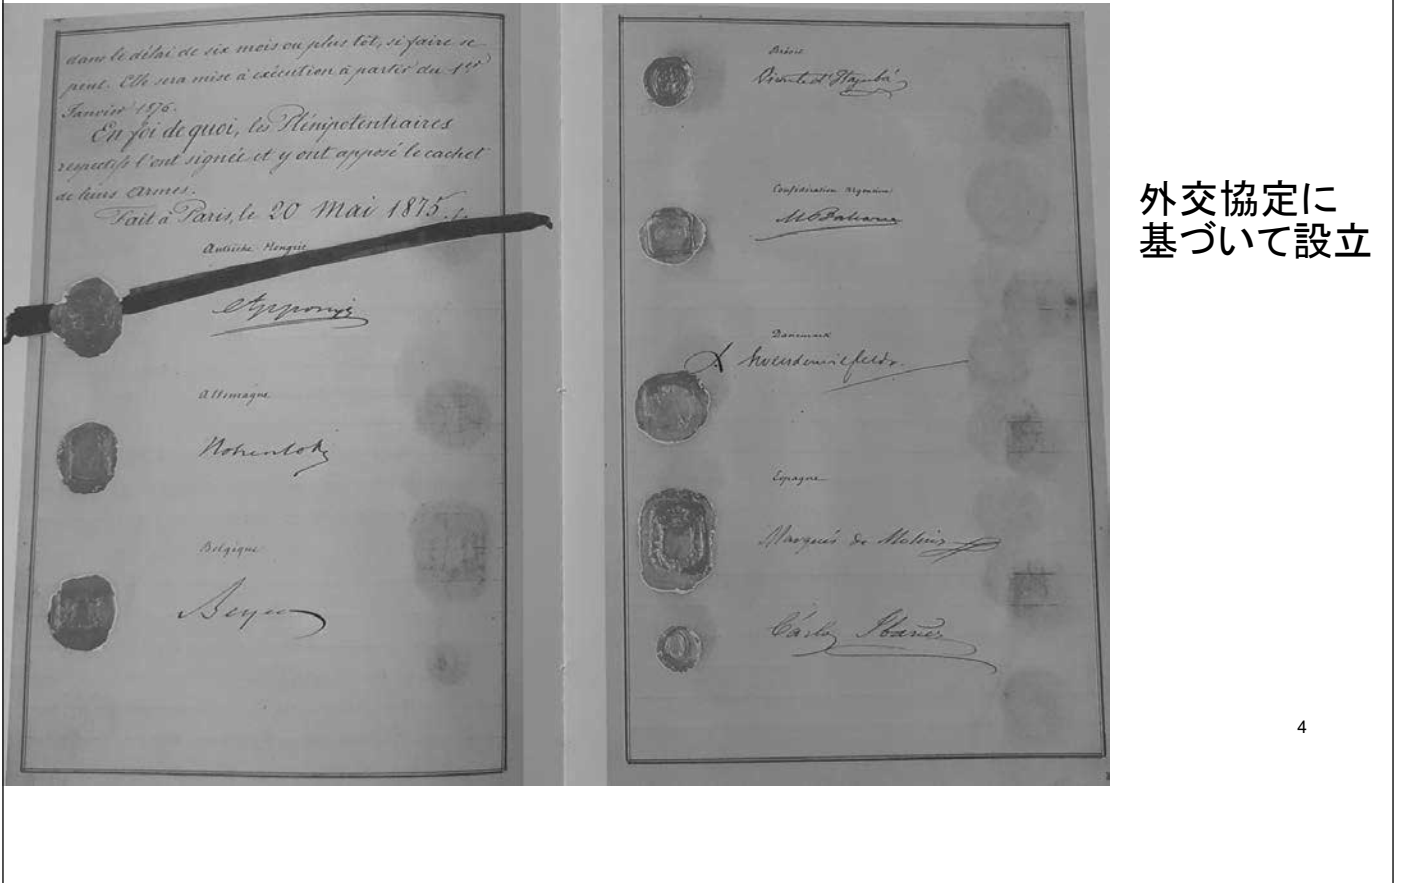 dans le délai de six mois ou plus tôt, si faire se
peut. Elle sera mise à exécution à partir du 1er
Janvier 1876.
En foi de quoi, les Plénipotentiaires
respectifs l'ont signée et y ont apposé le cachet
de leurs armes.
Fait à Paris, le 20 Mai 1875.
Autriche-Hongrie
Apponyi
Allemagne
Hohenlohe
Belgique
Beyens
Brésil
Vicomte d'Itajubá
Confédération Argentine
M Balcarce
Danemark
Espagne
Marqués de Molins
Carlos Ibañez
外交協定に
基づいて設立
4